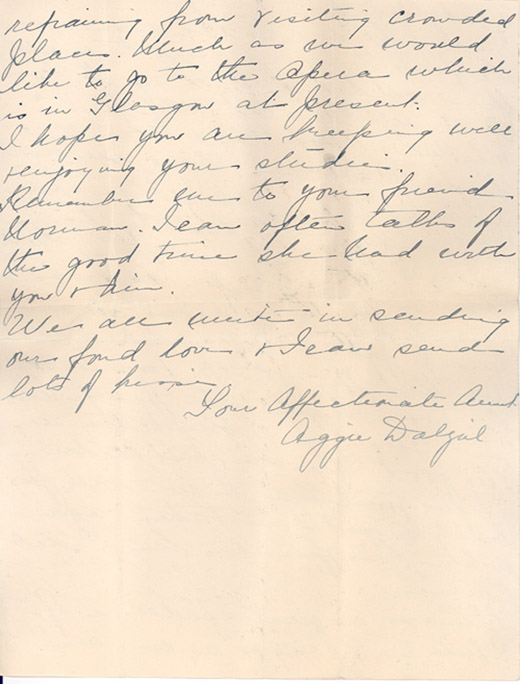 refraining from visiting crowded
places. Much as we would
like to go to the opera which
is in Glasgow at present.
I hope you are keeping well
& enjoying your studies.
Remember me to your friend
Norman. Jean often talks of
the good time she had with
you & him.
We all unite in sending
our fond love & Jean send
lots of kisses
Your Affectionate Aunt
Aggie Dalziel